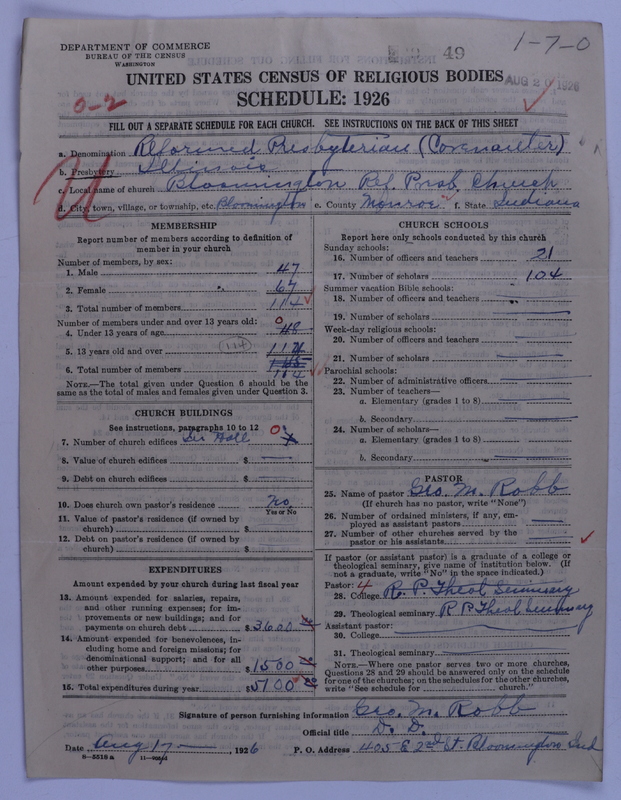 DEPARTMENT OF COMMERCE
BUREAU OF THE CENSUS
WASHINGTON
49
1-7-0
UNITED STATES CENSUS OF RELIGIOUS BODIES
AUG 20 1926
SCHEDULE: 1926
0-2
FILL OUT A SEPARATE SCHEDULE FOR EACH CHURCH. SEE INSTRUCTIONS ON THE BACK OF THIS SHEET
a. Denomination Reformed Presbyterian (Covenanter)
b. Presbytery Illinois
c. Local name of church Bloomington Ref. Presb. Church
d. City, town, village, or township, etc. Bloomington e. County Monroe f. State Indiana
MEMBERSHIP
Report number of members according to definition of
member in your church
Number of members, by sex:
1. Male 47
2. Female 67
3. Total number of members 114
Number of members under and over 13 years old:
4. Under 13 years of age 0 48
5. 13 years old and over (114)
6. Total number of members 114
NOTE.—The total given under Question 6 should be the
same as the total of males and females given under Question 3.
CHURCH BUILDINGS
See instructions, paragraphs 10 to 12
7. Number of church edifices Hall 0
8. Value of church edifices $
9. Debt on church edifices $
10. Does church own pastor's residence No
Yes or No
11. Value of pastor's residence (if owned by
church) $
12. Debt on pastor's residence (if owned by
church) $
EXPENDITURES
Amount expended by your church during last fiscal year
13. Amount expended for salaries, repairs,
and other running expenses; for im-
provements or new buildings; and for
payments on church debt $3600
14. Amount expended for benevolences, in-
cluding home and foreign missions; for
denominational support; and for all
other purposes 1500
15. Total expenditures during year $5100
CHURCH SCHOOLS
Report here only schools conducted by this church
Sunday schools:
16. Number of officers and teachers 21
17. Number of scholars 104
Summer vacation Bible schools:
18. Number of officers and teachers
19. Number of scholars
Week-day religious schools:
20. Number of officers and teachers
21. Number of scholars
Parochial schools:
22. Number of administrative officers
23. Number of teachers—
a. Elementary (grades 1 to 8)
b. Secondary
24. Number of scholars—
a. Elementary (grades 1 to 8)
b. Secondary
PASTOR
25. Name of pastor Geo. M. Robb
(If church has no pastor, write "None")
26. Number of ordained ministers, if any, em-
ployed as assistant pastors
27. Number of other churches served by the
pastor or his assistants
If pastor (or assistant pastor) is a graduate of a college or
theological seminary, give name of institution below. (If
not a graduate, write "No" in the space indicated.)
Pastor: 4
28. College R. P. Theol Seminary
29. Theological seminary R P Theol Seminary
Assistant pastor:
30. College
31. Theological seminary
NOTE.—Where one pastor serves two or more churches,
Questions 28 and 29 should be answered only on the schedule
for one of the churches; on the schedules for the other churches,
write "See schedule for church."
Signature of person furnishing information Geo. M. Robb
Official title D. D.
Date Aug 17 1926 P. O. Address 405 E 2nd St. Bloomington Ind
8-5518 a